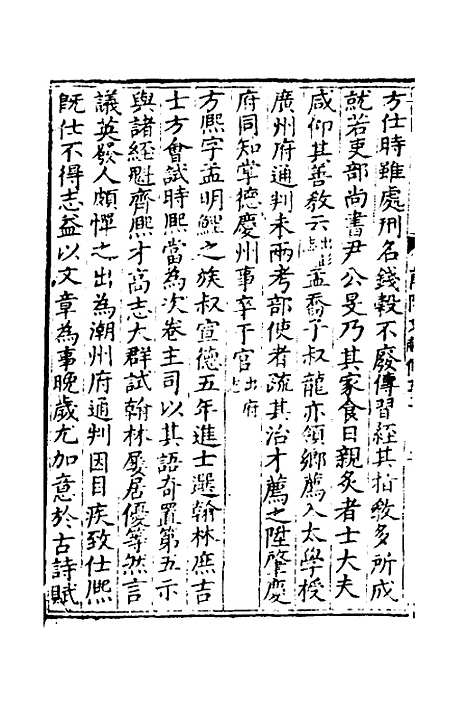 方仕時雖處刑名錢穀不廢傳習經其指教多所成
就若吏部尚書尹公旻乃其家食日親炙者士大夫
咸仰其善教云出孟喬子叔龍亦領鄉薦入太學授
廣州府通判未兩考部使者疏其治才薦之陞肇慶
府同知掌德慶州事卒于官出府
方熈字孟明鯉之族叔宣德五年進士選翰林庶吉
士方會試時熈當為次卷主司以其語奇置第五示
與諸經魁齊熈才高志大群試翰林屡居優等然言
議英發人頗憚之出為潮州府通判因目疾致仕熈
既仕不得志益以文章為事晚歲尤加意於古詩賦